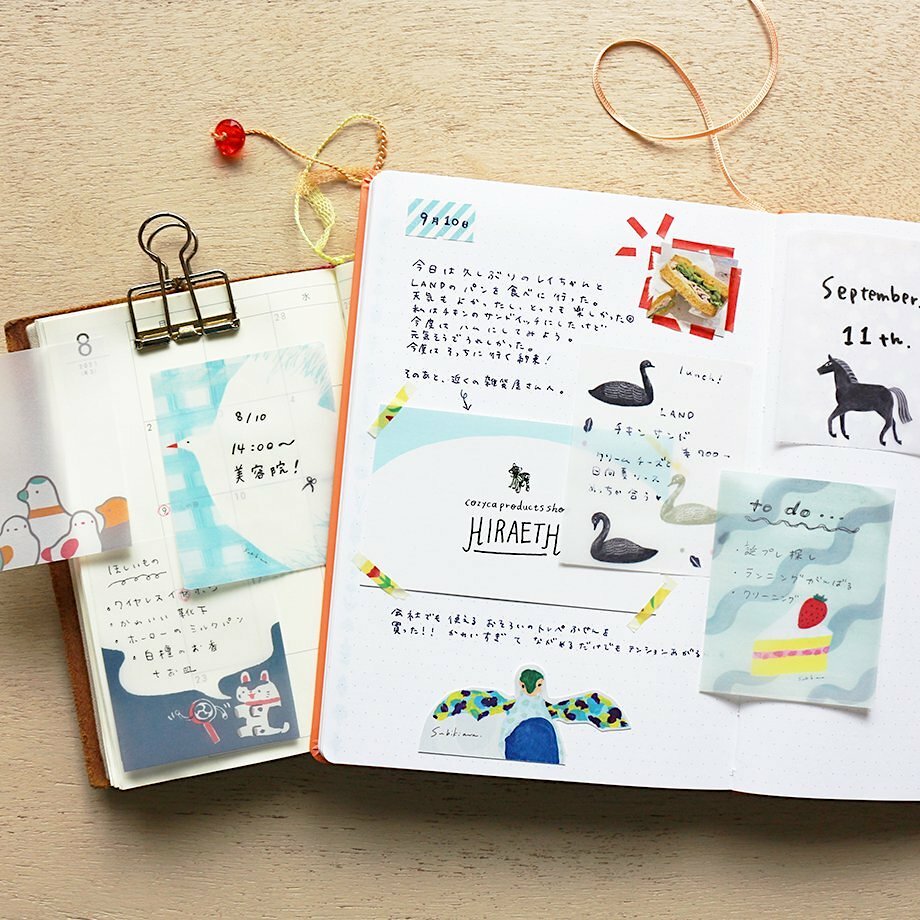 8
2021
水
28
2
9
10
23
8/10
14:00〜
美容院!
Subikiawa
ほしいもの
・ワイヤレスイヤホン
・かわいい靴下
・ホーローのミルクパン
・白檀のお香
とお皿
9月10日
今日は久しぶりのレイちゃんと
LANDのパンを食べに行った。
天気もよかったし、とっても楽しかった
私はチキンのサンドイッチにしたけど
今度はハムにしてみよう。
元気そうでうれしかった。
今度はそっちに行く約束!
そのあと、近くの雑貨屋さんへ。
cozyca products sho
HIRAETH
lunch!
LAND
チキンサンド
¥700→
クリームチーズと
日向夏ソース
めっちゃ合う♥
会社でも使えるおそろいのトレペふせんを
買った!!かわいすぎてながめるだけでもテンションあがる
Subikiawa.
September,
11th.
to do...
・誕プレ探し
・ランニングがんばる
・クリーニング
Subikiawa